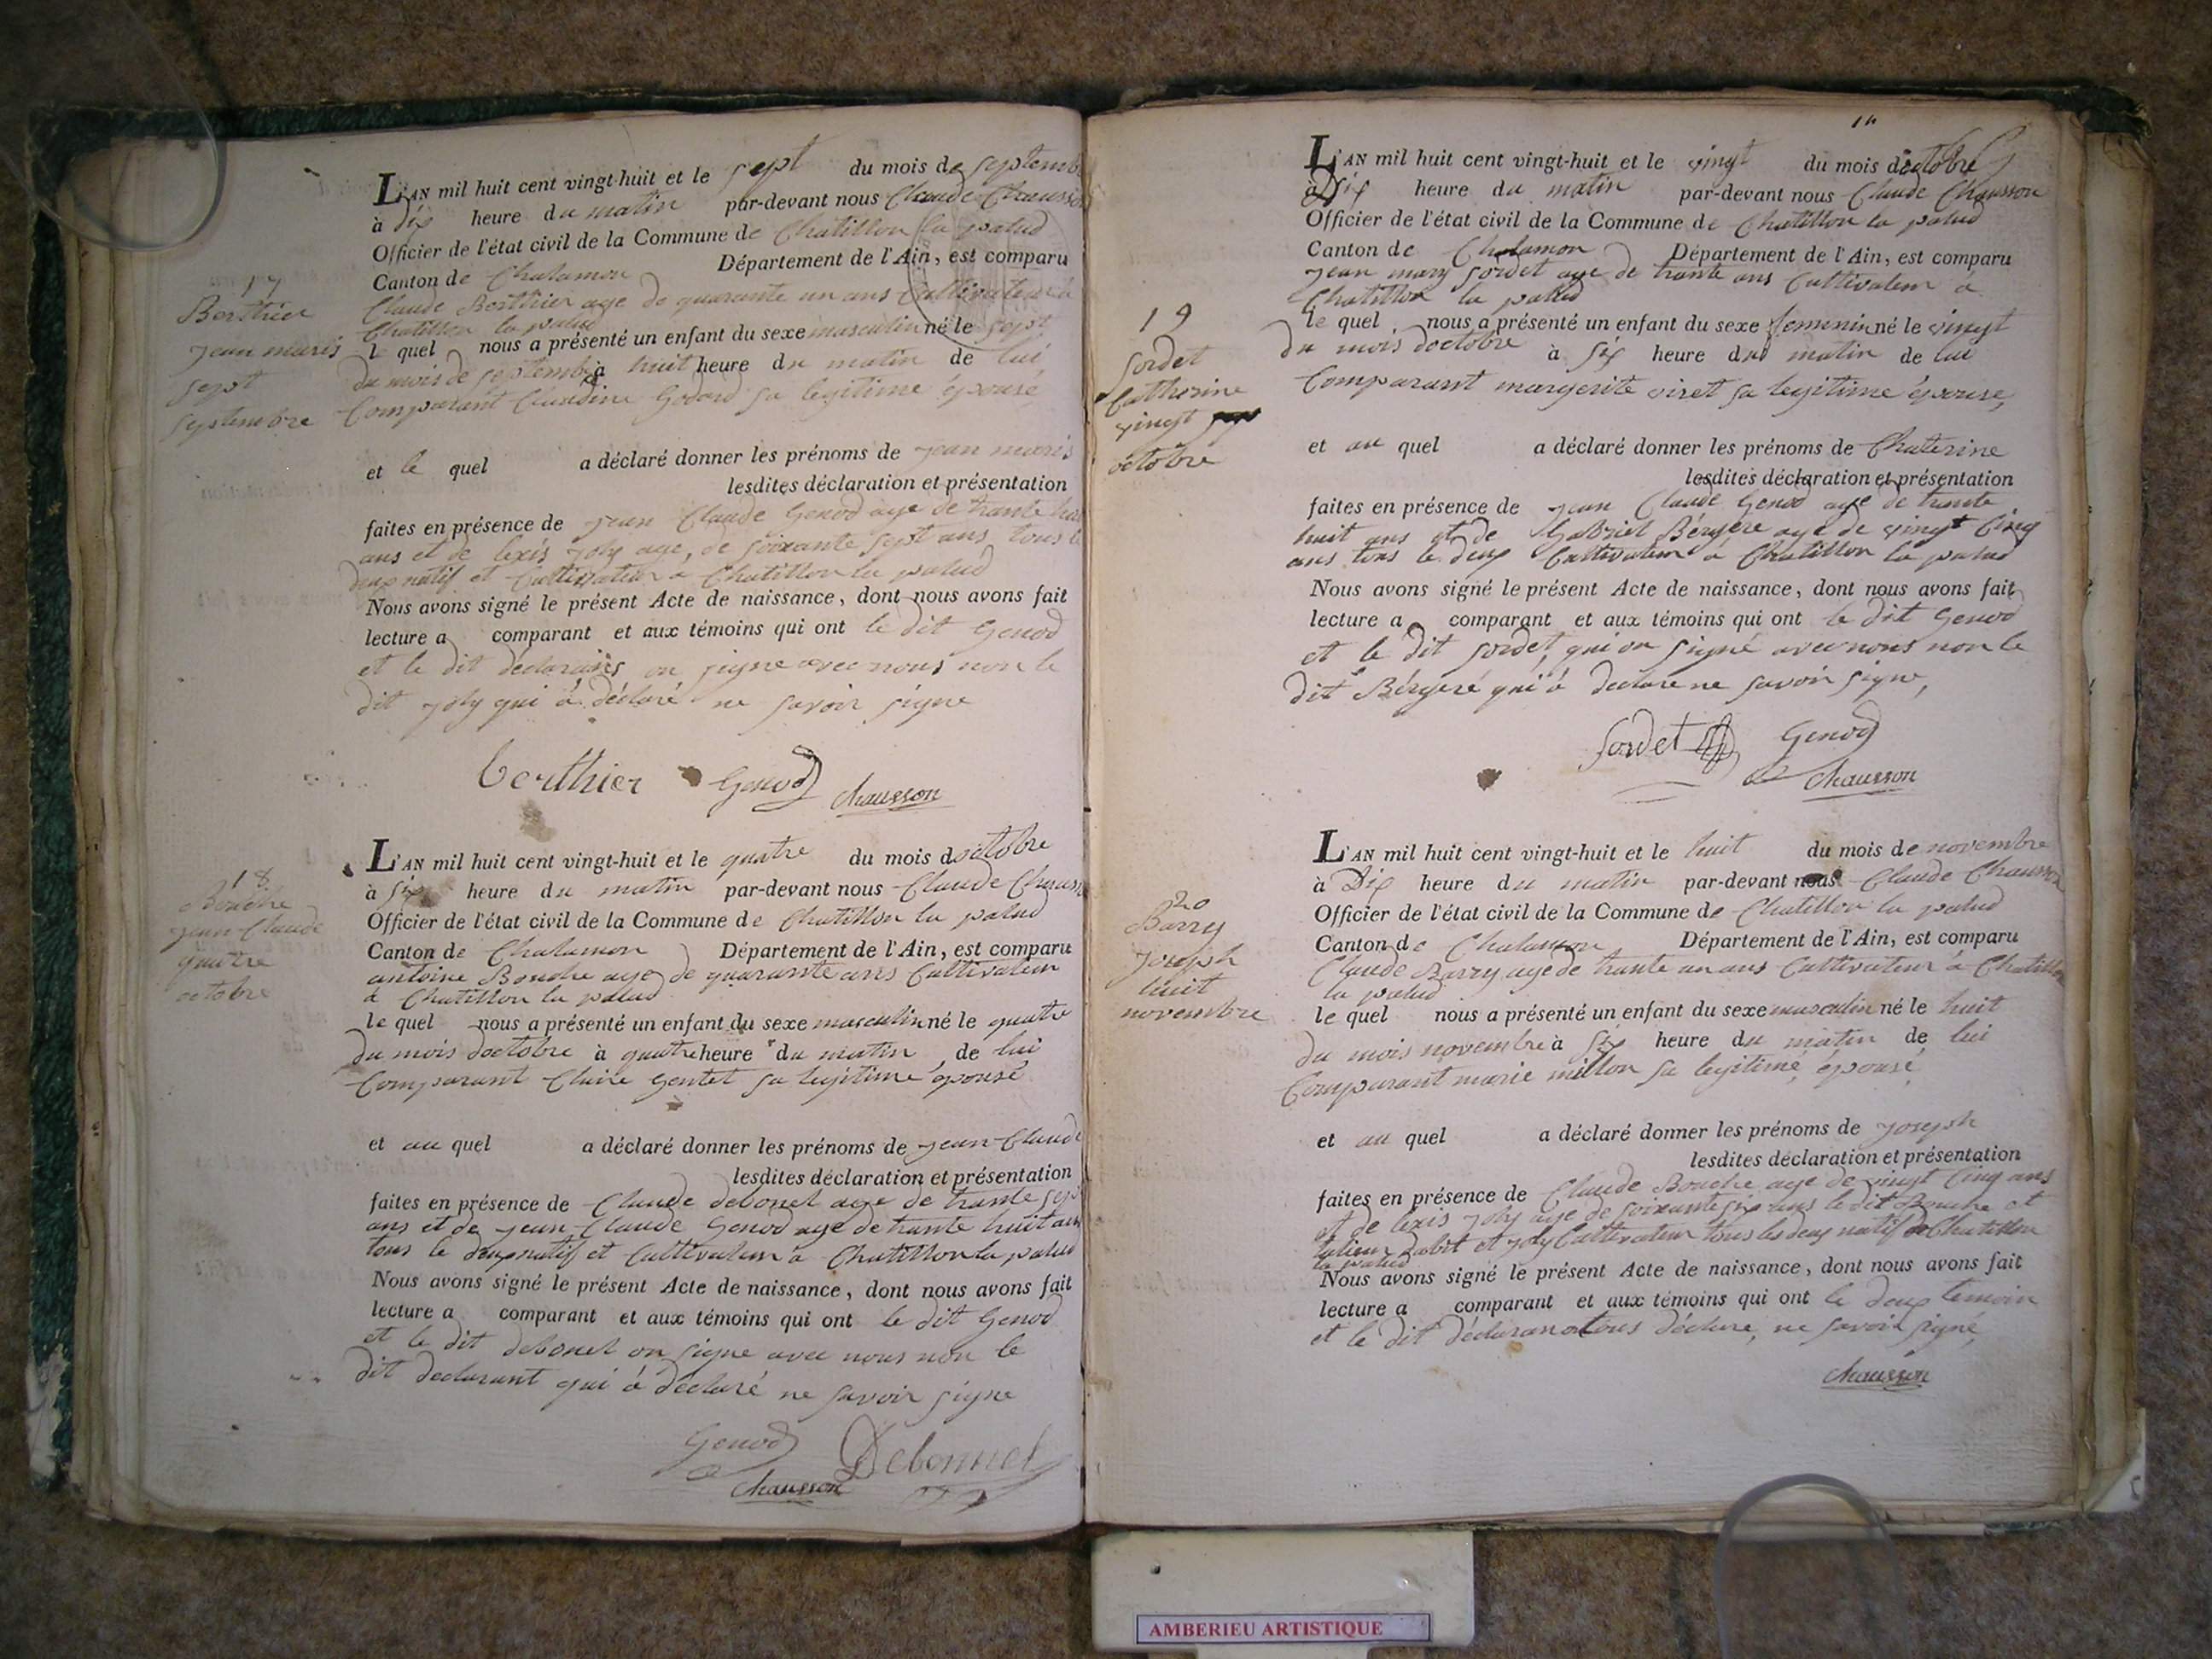 17
Berthier
jean maris
sept
septembre
L'AN mil huit cent vingt-huit et le sept du mois de septemb
à dix heure du matin par-devant nous Claude Chausson
Officier de l'état civil de la Commune de Chatillon la palud
Canton de Chalamon Département de l'Ain, est comparu
Claude Berthier age de quarante un ans Cultivateur à
Chatillon la palud
le quel nous a présenté un enfant du sexe masculin né le sept
du mois de septembre à huit heure du matin de lui
Comparant Claudine Godard sa legitime épouse
et le quel a déclaré donner les prénoms de jean maris
lesdites déclaration et présentation
faites en présence de jean Claude Genod age de trante huit
ans et de lexis joly age, de soixante sept ans tous le
deux natif et Cultivateur à Chatillon la palud
Nous avons signé le présent Acte de naissance, dont nous avons fait
lecture a comparant et aux témoins qui ont le dit Genod
et le dit déclarans on signe avec nous non le
dit joly qui à déclaré ne savoir signe
berthier Genod chausson
18
Bouche
jean Claude
quatre
octobre
L'AN mil huit cent vingt-huit et le quatre du mois doctobre
à six heure du matin par-devant nous Claude Chauss
Officier de l'état civil de la Commune de Chatillon la palud
Canton de Chalamon Département de l'Ain, est comparu
antoine Bouche age de quarante ans Cultivateur
à Chatillon la palud
le quel nous a présenté un enfant du sexe masculin né le quatre
du mois doctobre à quatre heure du matin de lui
Comparant Claire gentet sa legitime épouse
et au quel a déclaré donner les prénoms de jean Claude
lesdites déclaration et présentation
faites en présence de Claude debonel age de trante sept
ans et de jean Claude Genod age de trante huit ans
tous le deux natif et Cultivateur à Chatillon la palud
Nous avons signé le présent Acte de naissance, dont nous avons fait
lecture a comparant et aux témoins qui ont le dit Genod
et le dit debonel on signe avec nous non le
dit declarant qui à déclaré ne savoir signe
Genod Debonnel
chausson
19
Sordet
Catherine
vingt
octobre
L'AN mil huit cent vingt-huit et le vingt du mois doctobre
à six heure du matin par-devant nous Claude Chausson
Officier de l'état civil de la Commune de Chatillon la palud
Canton de Chalamon Département de l'Ain, est comparu
jean mary Sordet age de trante ans Cultivateur a
Chatillon la palud
le quel nous a présenté un enfant du sexe femenin né le vingt
du mois doctobre à six heure du matin de lui
Comparant margerite viret sa legitime épouse,
et au quel a déclaré donner les prénoms de Chaterine
lesdites déclaration et présentation
faites en présence de jean Claude Genod age de trante
huit ans et de Gabriel Bérgere age de vingt Cinq
ans tous le deux Cultivateur a Chatillon la palud
Nous avons signé le présent Acte de naissance, dont nous avons fait
lecture a comparant et aux témoins qui ont le dit Genod
et le dit sordet, qui on signé avec nous non le
dit Bérgeré qui à declare ne savoir signe,
Sordet Genod
chausson
20
Barry
joseph
huit
novembre
L'AN mil huit cent vingt-huit et le huit du mois de novembre
à Dix heure du matin par-devant nous Claude Chausson
Officier de l'état civil de la Commune de Chatillon la palud
Canton de Chalamon Département de l'Ain, est comparu
Claude Barry age de trante un ans Cultivateur à Chatillon
la palud
le quel nous a présenté un enfant du sexe masculin né le huit
du mois novembre à six heure du matin de lui
Comparant marie millon sa legitimé épousé
et au quel a déclaré donner les prénoms de joseph
lesdites déclaration et présentation
faites en présence de Claude Bouche age de vingt Cinq ans
et de lexis joly age de soixante six ans le dit Bouche et
talieur dabit et joly Cultivateur tous les deux natif de Chatillon
la palud
Nous avons signé le présent Acte de naissance, dont nous avons fait
lecture a comparant et aux témoins qui ont le deux temoin
et le dit déclaran tous déclare, ne savoir signé
chausson
AMBERIEU ARTISTIQUE